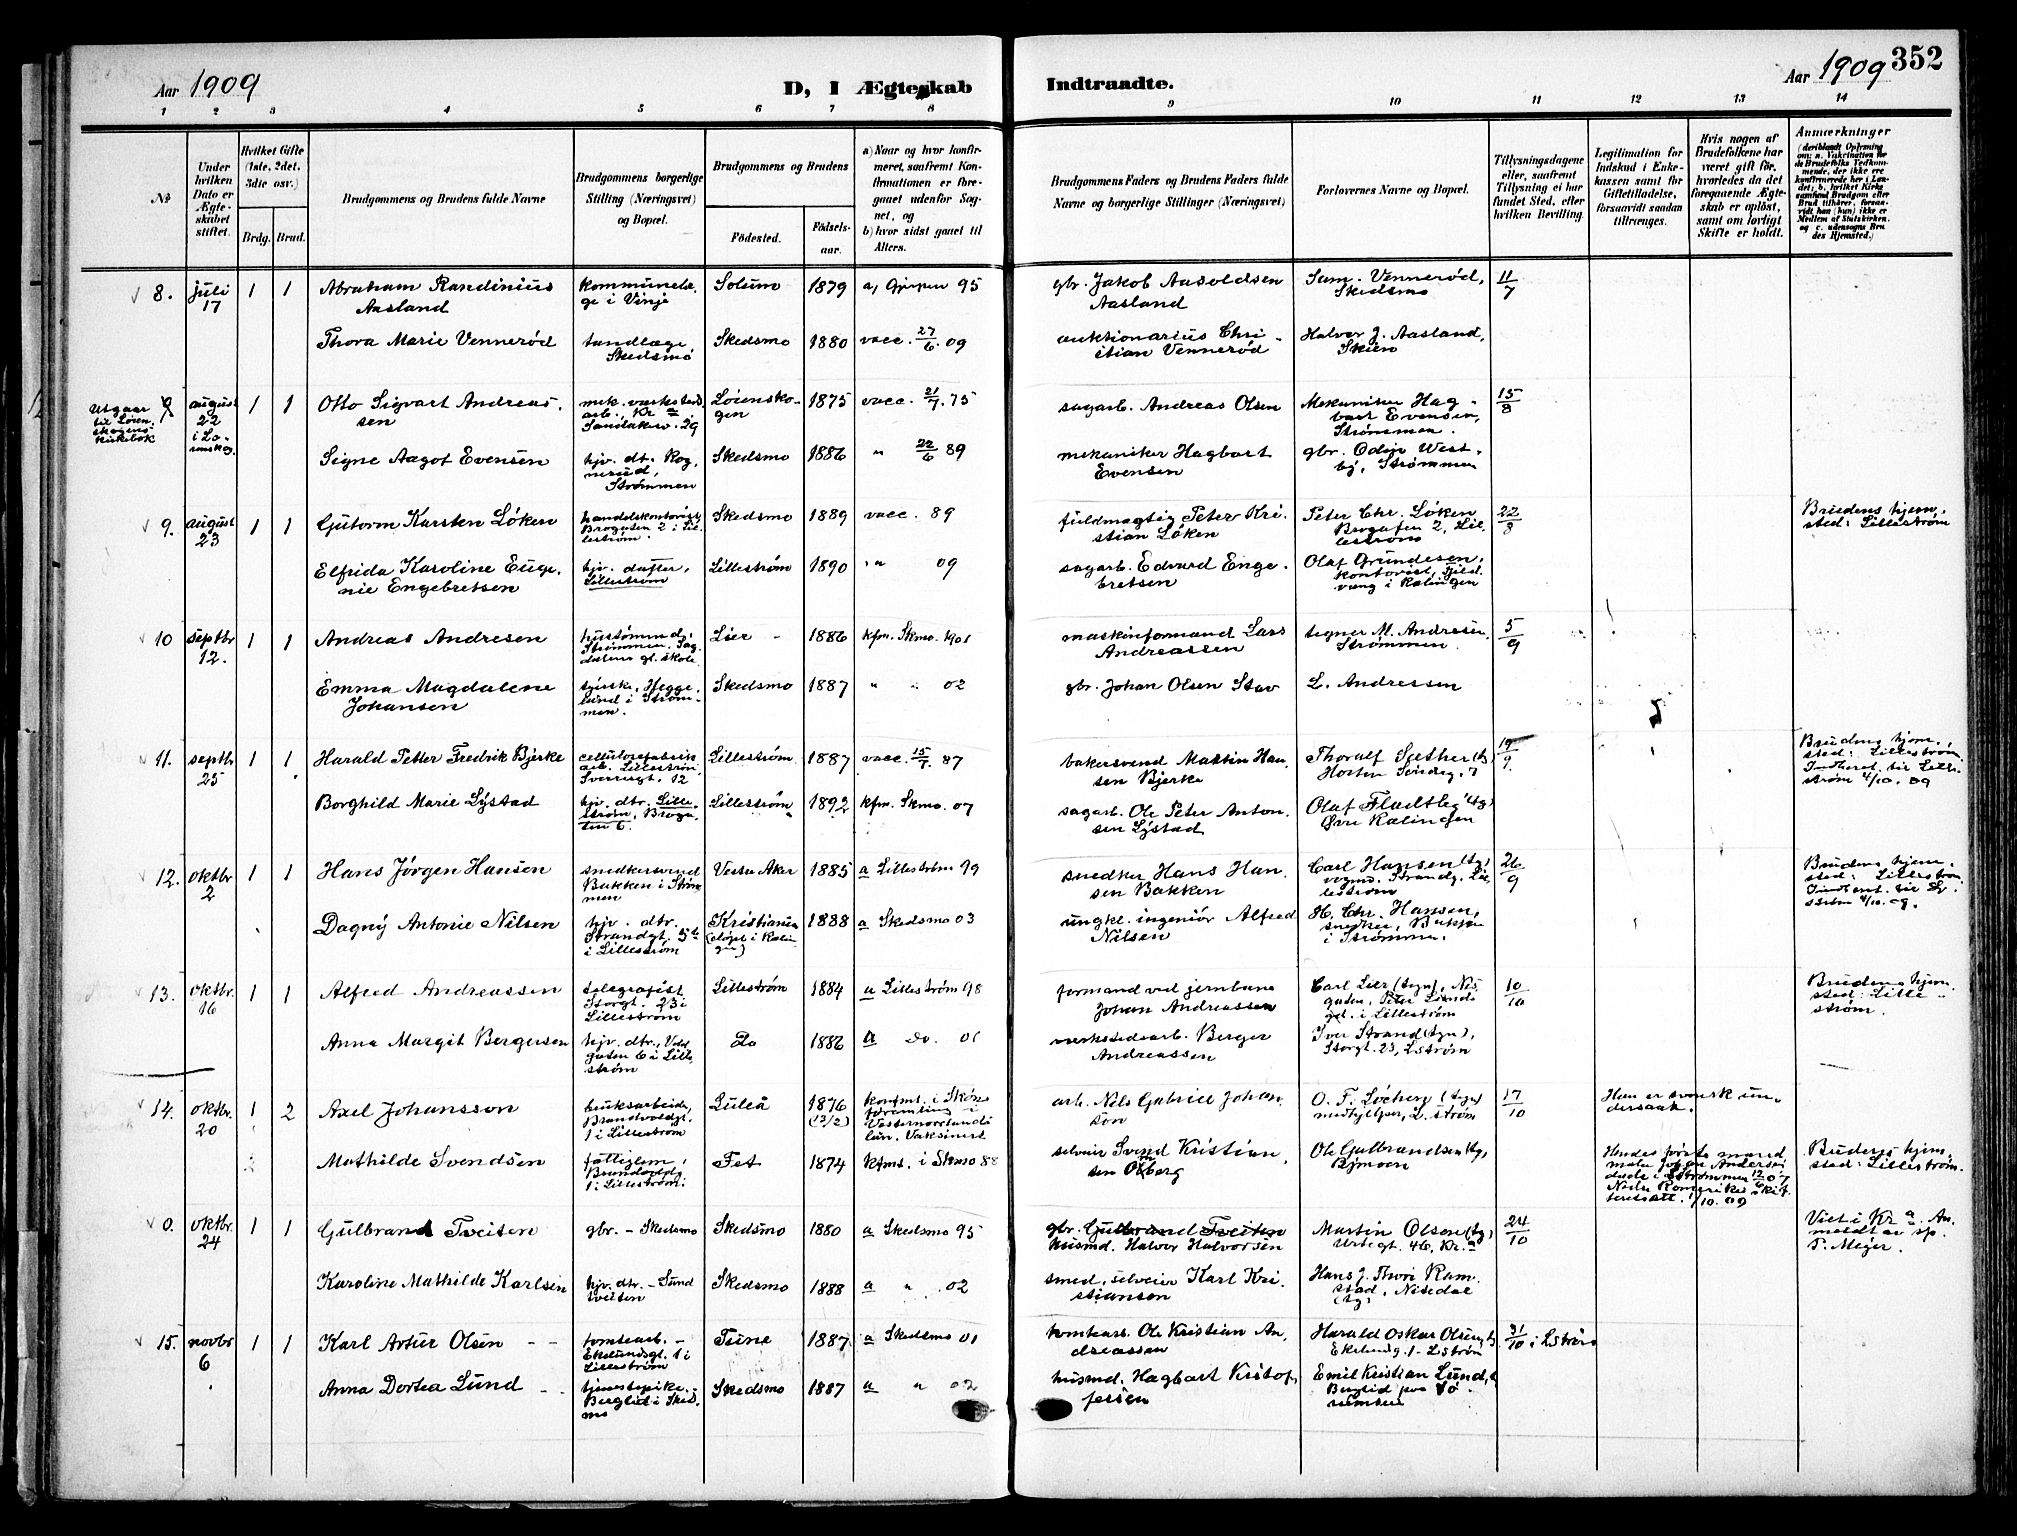 352
Aar 1909
D, I Ægteskab
Indtraadte.
Aar 1909
1 2 3 4 5 6 7 8 9 10 11 12 13 14
No
Under hvilken Dato er Ægteskabet stiftet.
Hvilket Gifte (1ste, 2det, 3die osv.)
Brdg. Brud.
Brudgommens og Brudens fulde Navne
Brudgommens borgerlige Stilling (Næringsvei) og Bopæl.
Brudgommens og Brudens
Fødested.
Fødselsaar.
a) Naar og hvor konfirmeret, saafremt Konfirmationen er foregaaet udenfor Sognet, og
b) hvor sidst gaaet til Alters.
Brudgommens Faders og Brudens Faders fulde Navne og borgerlige Stillinger (Næringsvei)
Forlovernes Navne og Bopæl.
Tillysningsdagene eller, saafremt Tillysning ei har fundet Sted, efter hvilken Bevilling.
Legitimation for Indskud i Enkekassen samt for Giftetilladelse, forsaavidt saadan tiltrænges.
Hvis nogen af Brudefolkene har været gift før, hvorledes da det foregaaende Ægteskab er opløst, samt om lovligt Skifte er holdt.
Anmærkninger
8. juli 17 1 1 Abraham Randinius Aasland
kommunelæge i Vinje Solum 1879 a, Gjerpen 95
gbr. Jakob Aasoldsen Aasland
Sam. Vennerød, Skedsmo 11/7
Thora Marie Vennerød tandlæge Skedsmo Skedsmo 1880 vacc. 27/6 09
auktionarius Christian Vennerød
Halvor J. Aasland, Skien
9 august 22 1 1 Otto Sigvart Andreassen
mek. verkstedsarb., Kr.a Sandakerv. 29 Lørenskogen 1875 vacc. 21/7 75
sagarb. Andreas Olsen
Mekaniker Hagbart Evensen, Strømmen. 15/8
Signe Aagot Evensen hjv. dt. Rognerud, Strømmen Skedsmo 1886 " 22/6 89
mekaniker Hagbart Evensen
gbr. Odin Westby, Strømmen
9. august 23 1 1 Gutorm Karsten Løken
handelskontorist Brogaten 2 i Lillestrøm Skedsmo 1889 vacc. 89
fuldmægtig Peter Kristian Løken
Peter Chr. Løken Brogaten 2, Lillestrøm 22/8
Brudens hjemsted: Lillestrøm
Elfrida Karoline Eugenie Engebretsen hjv. datter, Lillestrøm Lillestrøm 1890 " 09
sagarb. Edvard Engebretsen
Olaf Gundersen, kontorist, i Rælingen
10 septbr 12. 1 1 Andreas Andresen
Strømmen, Sagdalens gl. skole Lier 1886 kfm. Skmo. 1901
maskinformand Lars Andreassen
tegner M. Andresen, Strømmen. 5/9
Emma Magdalene Johansen Heggelund i Strømmen. Skedsmo 1887 " " 02
gbr. Johan Olsen Stav
L. Andressen
11. septbr 25 1 1 Harald Petter Fredrik Bjerke
cellulosefabrikarb. Lillestrøm, Sverresgt. 12 Lillestrøm 1887 vacc. 15/7 87
bakersvend Martin Hansen Bjerke
Thoralf Sæther (tg) Horten 19/9
Brudens hjemsted: Lillestrøm 4/10. 09
Borghild Marie Lystad hjv. dtr. Lillestrøm, Brogaten 6. Lillestrøm 1892 kfm. Skmo. 07
sagarb. Ole Peter Antonsen Lystad
Olaf Fladtbg (tg) Øvre Rælingen
12. oktbr 2 1 1 Hans Jørgen Hansen
snedkersvend Bakken i Strømmen Vestre Aker 1885 a Lillestrøm 99
snedker Hans Hansen Bakken
Carl Hansen (tg) Strandg. Lillestrøm 26/9
Brudens hjemsted: Lillestrøm 4/10. 09.
Dagny Antonie Nilsen hjv. dtr. Strandgt. 5 b i Lillestrøm Kristiania 1888 a Skedsmo 03
ungkl. ingeniør Alfred Nilsen
H. Chr. Hansen, snedker, Bakken i Strømmen.
13. oktbr. 16 1 1 Alfred Andreassen
telegrafist Storgt. 23 i Lillestrøm Lillestrøm 1884 a Lillestrøm 98
formand ved jernbane Johan Andreassen
Carl Lier (tgn), i Lillestrøm 10/10
Brudens hjemsted: Lillestrøm.
Anna Margit Bergersen hjv. dtr., gaten 6 i Lillestrøm Do 1886 a Do. 01
verkstedsarb. Berger Andreassen
Iver Strand (tgn), Storgt. 23, Lstrøm
14. oktbr. 20 1 2 Axel Johansson
bruksarbeider, Brandvoldgt. 1 i Lillestrøm Luleå 1876 (13/2) konfms. i Sköns församling i Vesternorrlands län. Vaksinert
arb. Nils Gabriel Johansson
O. F. Løeberg (tgn) medhjelper, L.strøm 17/10
Han er svensk undersaat.
Mathilde Svendsen fattiglem, Brandvoldg. 1 i Lillestrøm. Fet 1874 kfms. i Skmo 88
selveier Svend Kristiansen Omberg
Ole Gulbrandsen (tg) Bjmoen
Hendes første mand Johan Andersen døde i Strømmen 12/6 07 Nedre Romerike skifteret 1/10. 09
Brudens hjemsted: Lillestrøm.
0. oktbr 24 1 1 Gulbrand Tveiten
gbr. - Skedsmo Skedsmo 1880 a Skedsmo 95
gbr. Gulbrand Tveiten husmd. Halvor Halvorsen
Martin Olsen (tg) Urtegt. 46, Kr.a 24/10
Viet i Kr.a. Anmeldt av sp. P. Meyer.
Karoline Mathilde Karlsen hjv. dtr. - Sund Tveiten Skedsmo 1888 a " 02
smed, selveier Karl Kristiansen
Hans J. Thori Ramstad, Nitedal (tg)
15. novbr 6 1 1 Karl Artur Olsen
tomtearb. - Ekelundsgt. 1 i Lillestrøm Tune 1887 a Skedsmo 01
tomtearb. Ole Kristian Andreassen
Harald Oskar Olsen, tg Ekelundsg. 1 - Lstrøm 31/10 i Lstrøm
Anna Dortea Lund tjenestepike. - Berglid i Skedsmo Skedsmo 1887 a " 02
husmd. Hagbart Kristoffersen
Emil Kristian Lund, tg Berglid